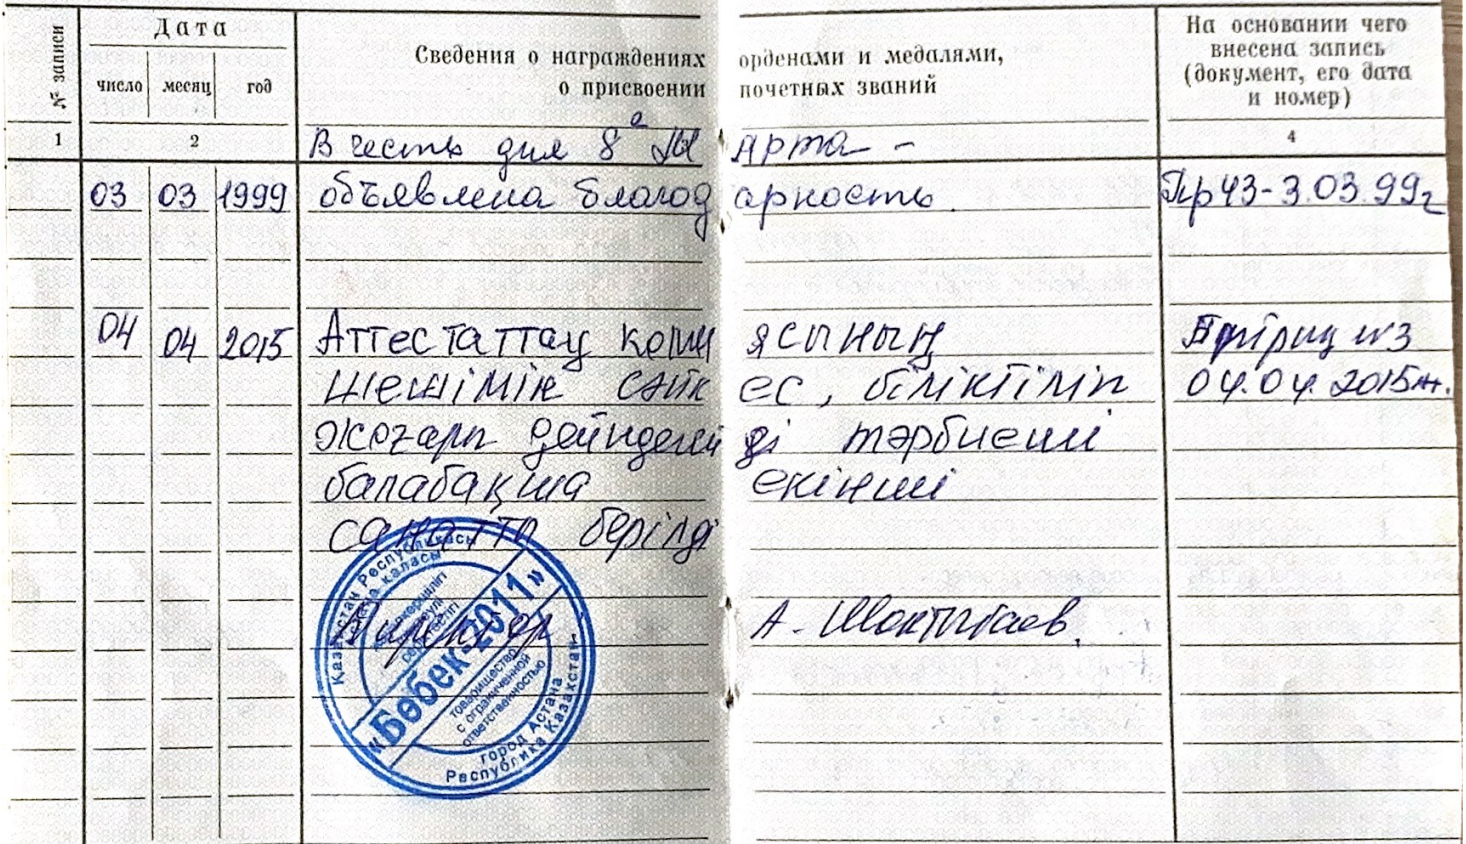 № записи
Дата
число месяц год
Сведения о награждениях орденами и медалями,
о присвоении почетных званий
На основании чего
внесена запись
(документ, его дата
и номер)
1 2 4
В честь дня 8е Марта -
03 03 1999 объявлена благодарность. Пр43-3.03.99г
04 04 2015 Аттестаттау комиясының №3
шешімін сәйкес, біліктілігі 04.04.2015ж.
жоғары дейндегейді тәрбиеші
балабақша екінші
санатты берілді
Директор А. Шоктыбаев.
Қазақстан Республикасы
Астана қаласы
жауапкершілігі
шектеулі
серіктестігі
«Бөбек-2011»
товарищество
с ограниченной
ответственностью
город Астана
Республика Казахстан